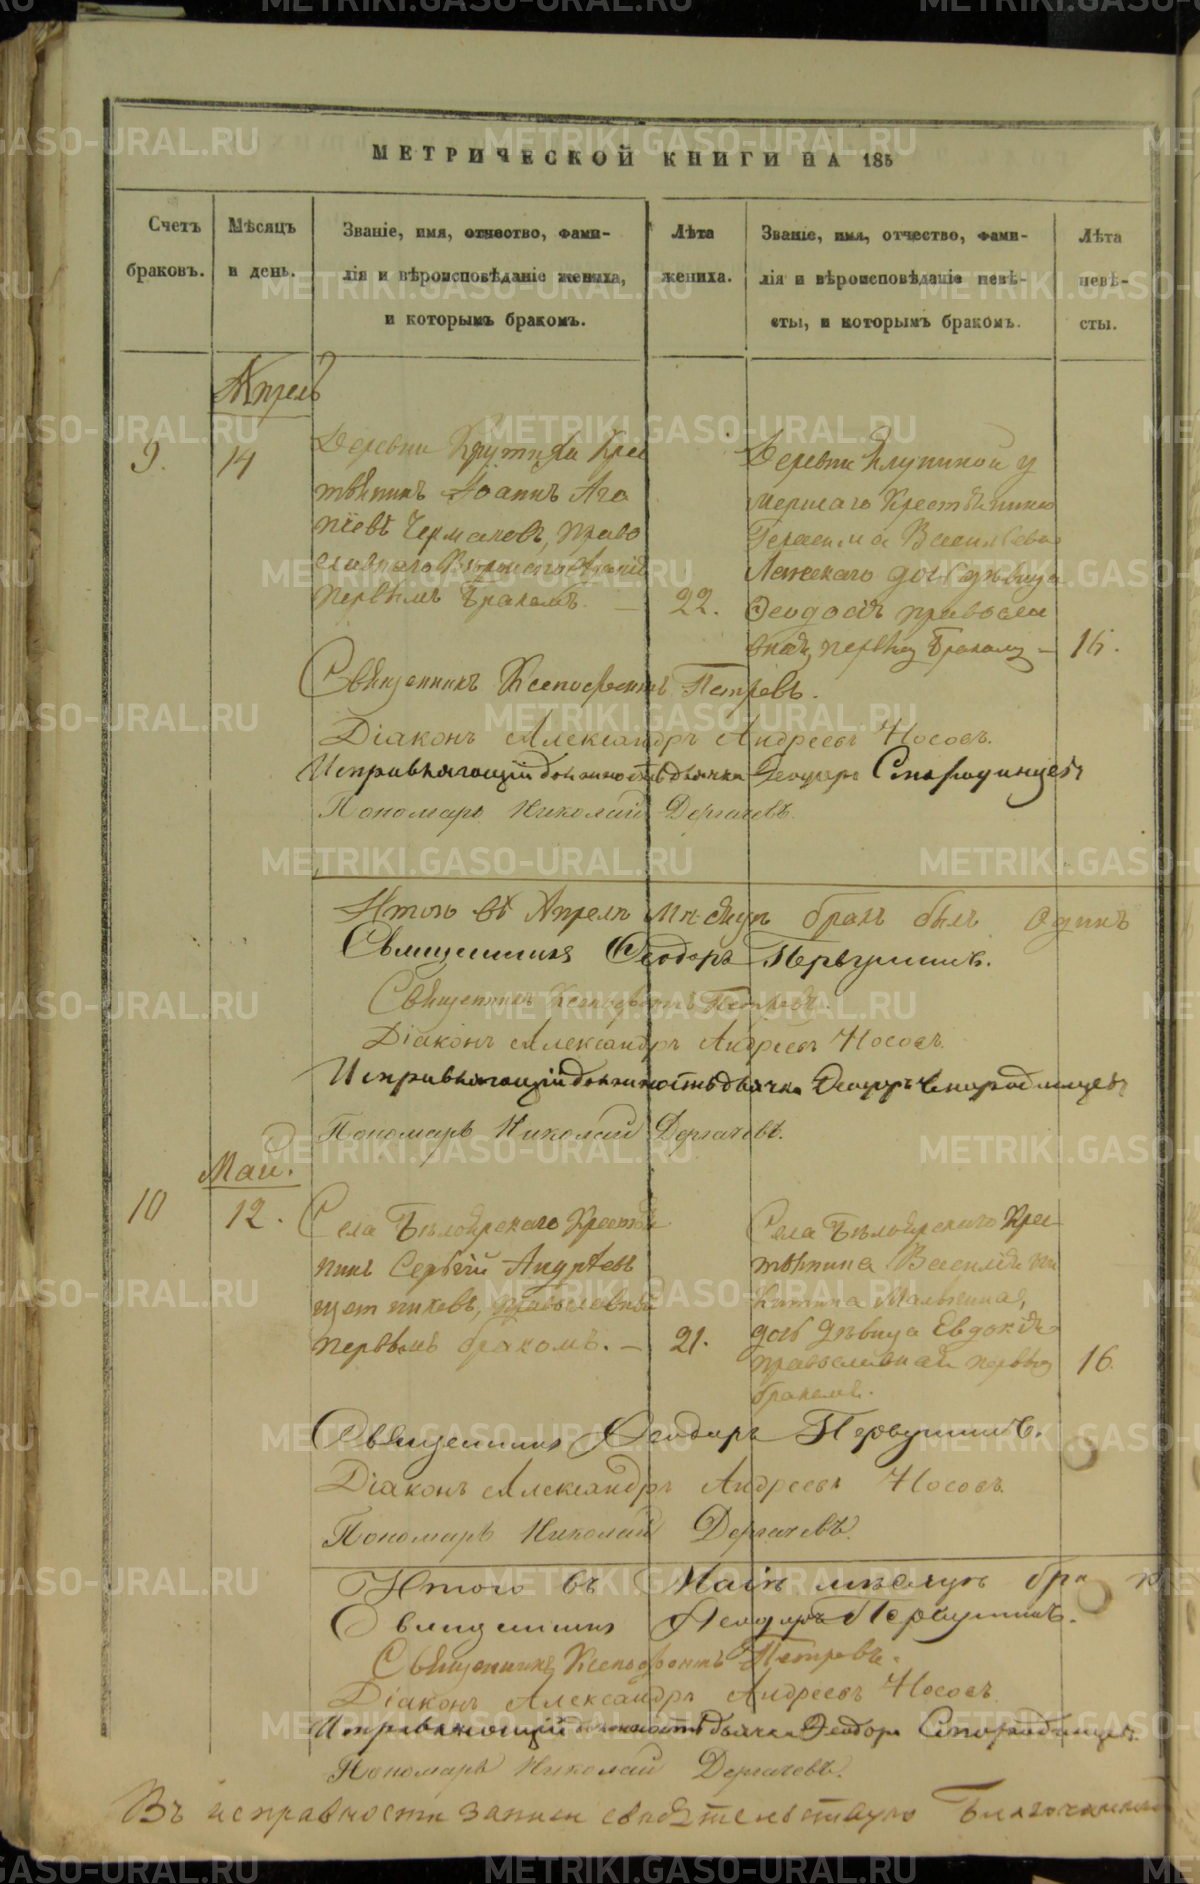 МЕТРИЧЕСКОЙ КНИГИ НА 185
Счетъ браковъ.
Мѣсяцъ и день.
Званіе, имя, отчество, фами-
лія и вѣроисповѣданіе жениха,
и которымъ бракомъ.
Лѣта жениха.
Званіе, имя, отчество, фами-
лія и вѣроисповѣданіе невѣ-
сты, и которымъ бракомъ.
Лѣта невѣ-
сты.
Апрель
9.
14
Деревни Крутихи Крес
тьянинъ Іоаннъ Ага
піевъ Чермаковъ, право
славнаго
первымъ бракомъ. —
22.
Деревни у
мершаго Крестьянина
Герасима Васильева
дочь дѣвица
Ѳеодосія правосла
вная, первымъ бракомъ —
16.
Священникъ Ксенофонтъ Петровъ.
Діаконъ Александръ Андреевъ Носовъ.
Исправляющій должность дьячка Ѳеодоръ Стародинцевъ
Пономарь Николай Дергачевъ.
Итого въ Апрелѣ Мѣсяцѣ бракъ былъ одинъ
Священникъ Ѳеодоръ Первушинъ.
Священникъ Ксенофонтъ Петровъ.
Діаконъ Александръ Андреевъ Носовъ.
Исправляющій должность дьячка Ѳеодоръ Стародинцевъ
Пономарь Николай Дергачевъ.
Май.
10
12.
Села Бѣлоярскаго Крестья
нинъ Сергѣй Андрѣевъ
Щетниковъ, православный
первымъ бракомъ. —
21.
Села Бѣлоярскаго Крес
тьянина Василія Ни
китина
дочь дѣвица Евдокія
православная первымъ
бракомъ.
16.
Священникъ Ѳеодоръ Первушинъ.
Діаконъ Александръ Андреевъ Носовъ.
Пономарь Николай Дергачевъ.
Итого въ Маіѣ мѣсяцѣ
Священникъ Ѳеодоръ Первушинъ.
Священникъ Ксенофонтъ Петровъ.
Діаконъ Александръ Андреевъ Носовъ.
Исправляющій должность дьячка Ѳеодоръ Стародинцевъ.
Пономарь Николай Дергачевъ.
Въ исправности записи свидѣтельствую Благочинный
METRIKI.GASO-URAL.RU